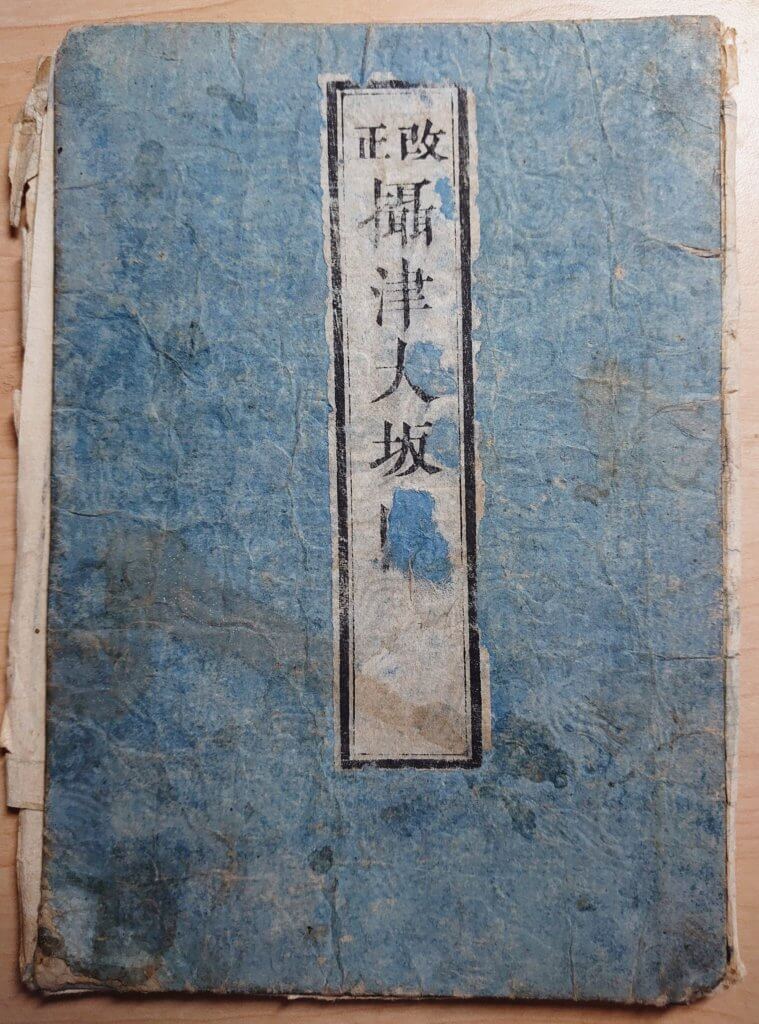 改正
攝津大坂